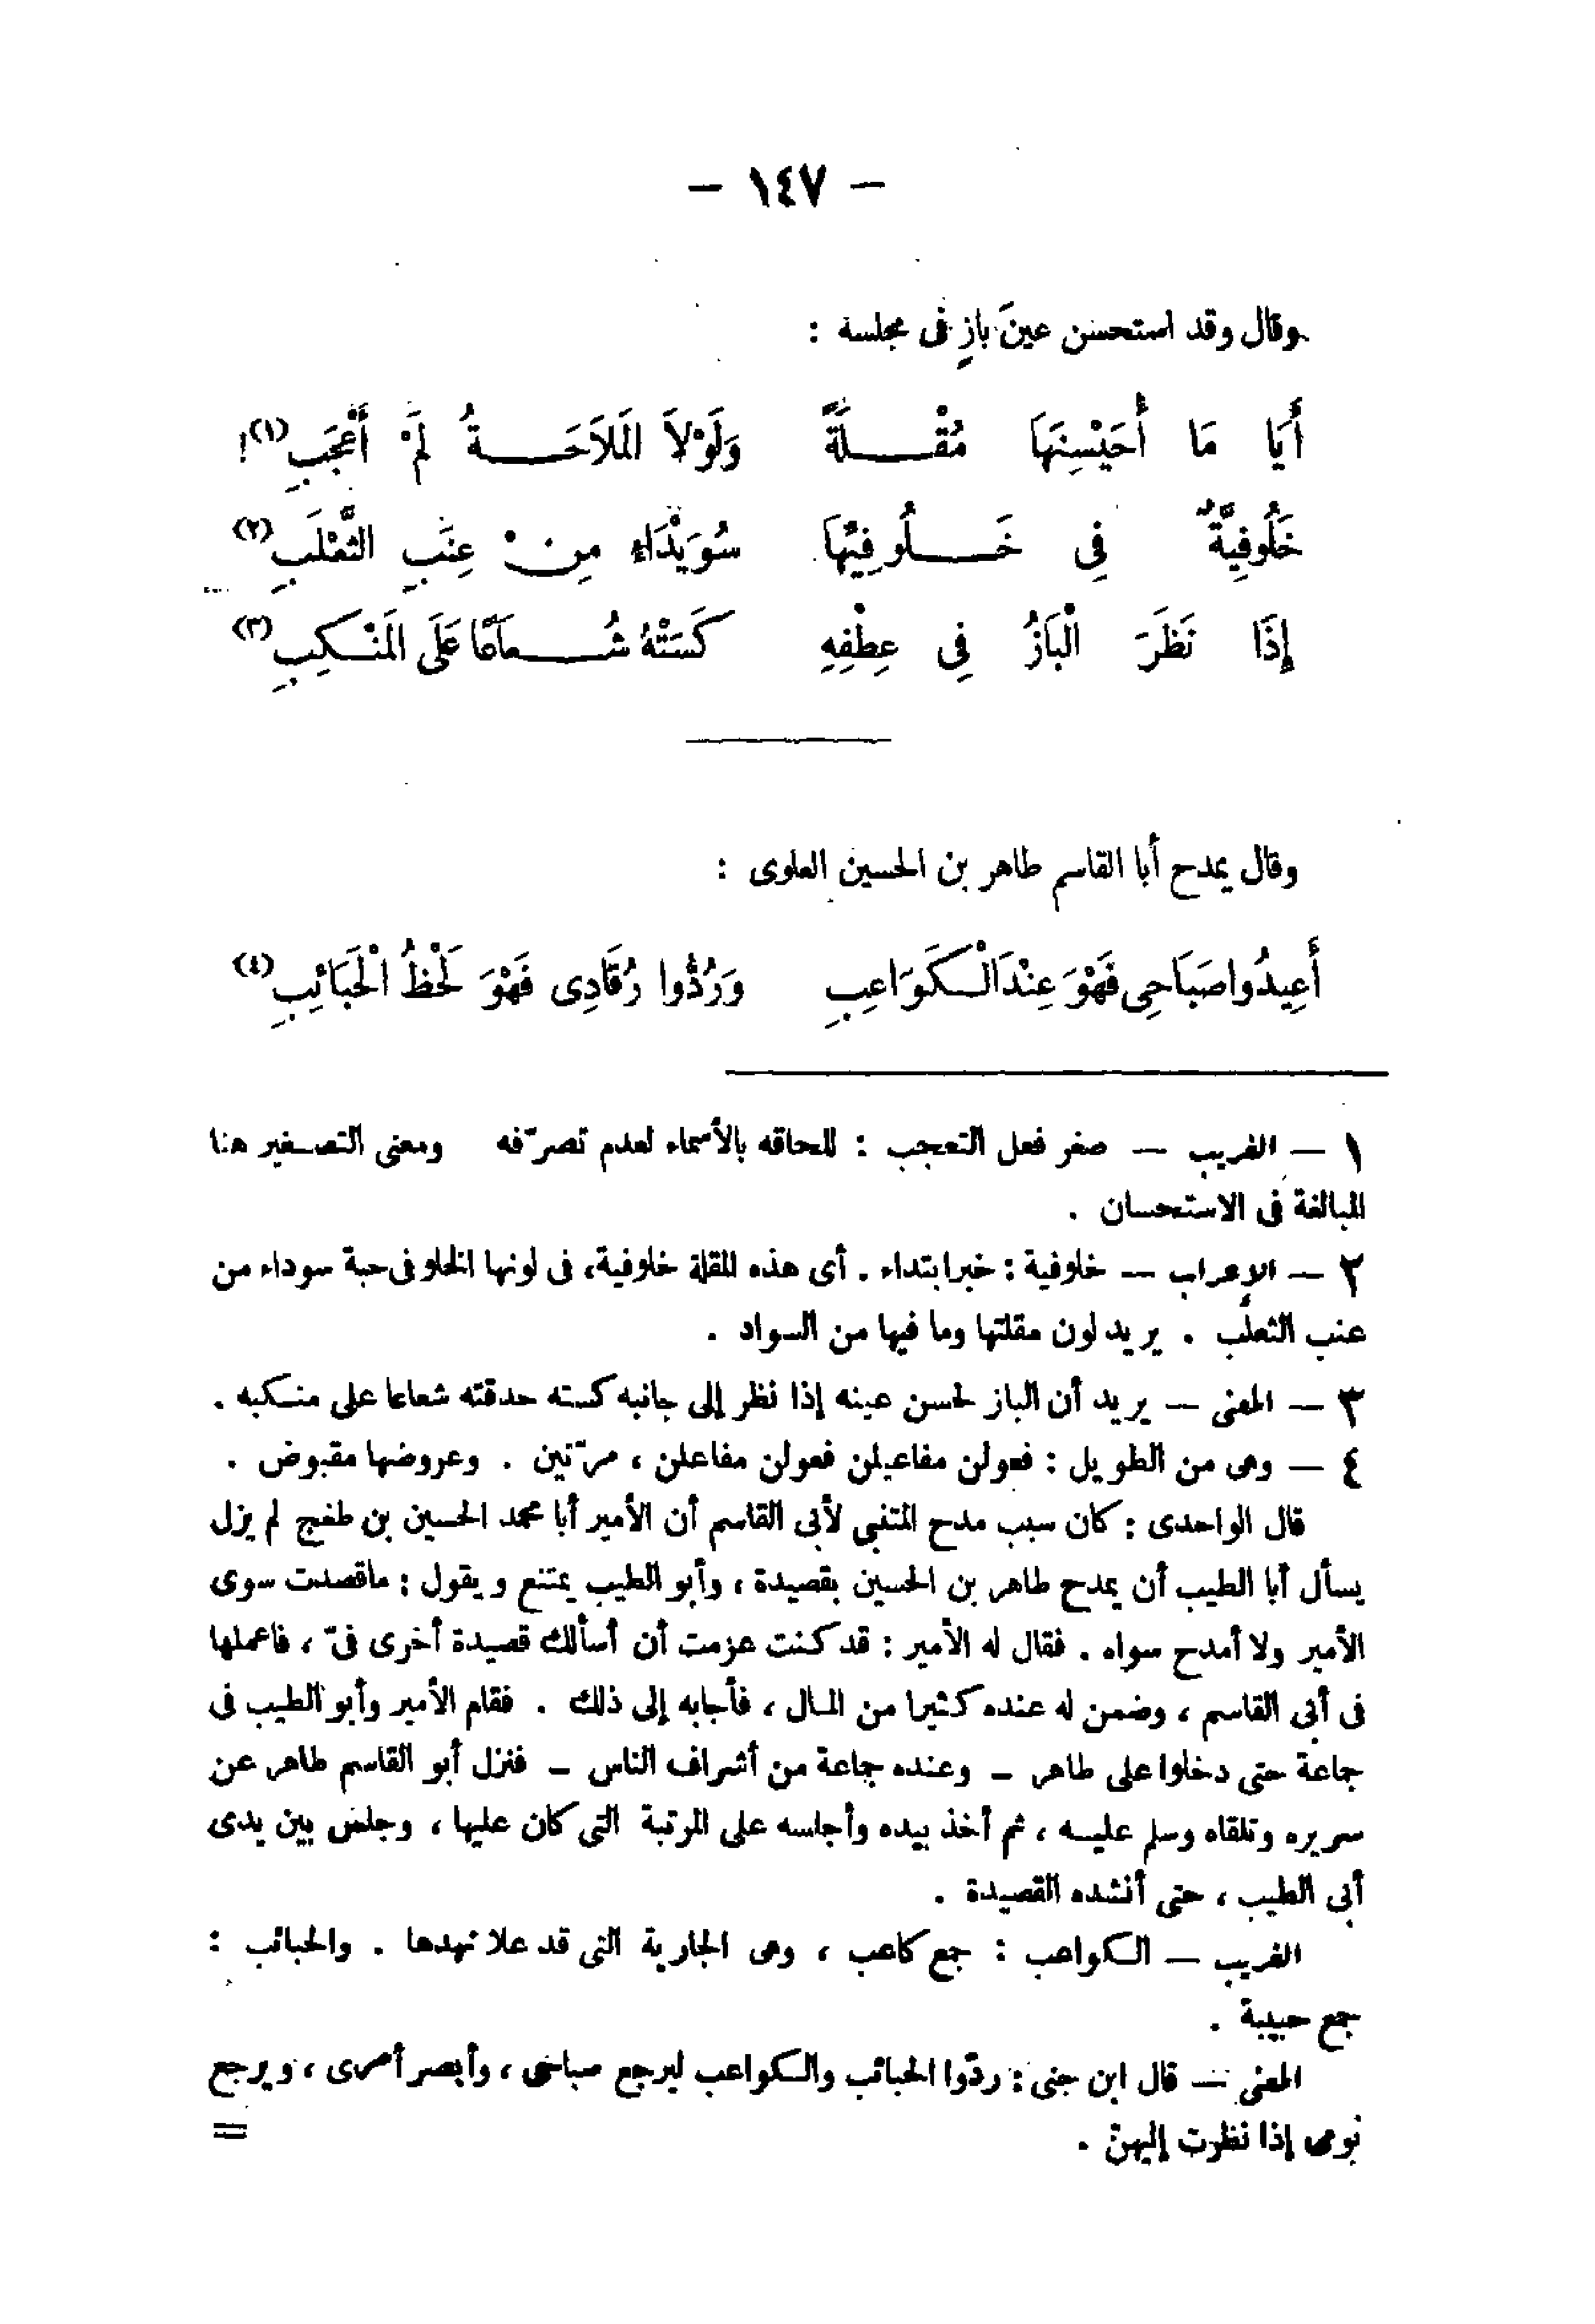 — ١٤٧ —
وقال وقد استحسن عينَ بازٍ فى مجلسه :
أَيَا مَا أُحَيْسِنِهَا مُقْلَةً وَلَوْلاَ الْمَلاَحَةُ لَمْ أَعْجَبِ (١)!
خَلُوفِيَّةٌ فِى خَلُوفِيِّهَا سُوَيْدَاءُ مِنْ عِنَبِ الثَّعْلَبِ (٢)
إِذَا نَظَرَ الْبَازُ فِى عِطْفِهِ كَسَتْهُ شُعَاعًا عَلَى الْمَنْكِبِ (٣)
وقال يمدح أبا القاسم طاهر بن الحسين العلوى :
أَعِيدُوا صَبَاحِى فَهْوَ عِنْدَ الْكَوَاعِبِ وَرُدُّوا رُقَادِى فَهْوَ لَحْظُ الْحَبَائِبِ (٤)
١ — الغريب — صغر فعل التعجب : للحاقه بالأسماء لعدم تصرّفه ومعنى التصغير هنا
المبالغة فى الاستحسان .
٢ — الإعراب — خلوفية : خبر ابتداء . أى هذه المقلة خلوفية، فى لونها الخلوفى حبة سوداء من
عنب الثعلب . يريد لون مقلتها وما فيها من السواد .
٣ — المعنى — يريد أن الباز لحسن عينه إذا نظر إلى جانبه كسته حدقته شعاعا على منكبه .
٤ — وهى من الطويل : فعولن مفاعيلن فعولن مفاعلن ، مرّتين . وعروضها مقبوض .
قال الواحدى : كان سبب مدح المتنبى لأبى القاسم أن الأمير أبا محمد الحسين بن طغج لم يزل
يسأل أبا الطيب أن يمدح طاهر بن الحسين بقصيدة ، وأبو الطيب يمتنع ويقول : ماقصدت سوى
الأمير ولا أمدح سواه . فقال له الأمير : قد كنت عزمت أن أسألك قصيدة أخرى فىّ ، فاعملها
فى أبى القاسم ، وضمن له عنده كثيرا من المال ، فأجابه إلى ذلك . فقام الأمير وأبو الطيب فى
جماعة حتى دخلوا على طاهر — وعنده جماعة من أشراف الناس — فنزل أبو القاسم طاهر عن
سريره وتلقاه وسلم عليه ، ثم أخذ بيده وأجلسه على المرتبة التى كان عليها ، وجلس بين يدى
أبى الطيب ، حتى أنشده القصيدة .
الغريب — الكواعب : جمع كاعب ، وهى الجارية التى قد علا نهدها . والحبائب :
جمع حبيبة .
المعنى — قال ابن جنى : ردّوا الحبائب والكواعب ليرجع صباحى ، وأبصر أمرى ، ويرجع
نومى إذا نظرت إليهنّ .
=